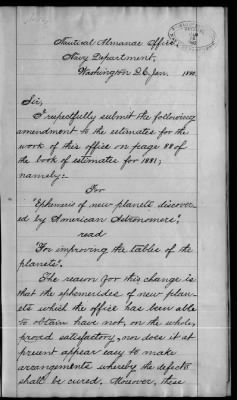 Nautical Almanac Office,
Navy Department,
Washington D.C. Jan. 1880.
Sir,
I respectfully submit the following
amendment to the estimates for the
work of this office on page 88 of
the book of estimates for 1881;
namely:-
For
"Ephemeris of new planets discover-
ed by American Astronomers",
read
"For improving the tables of the
planets".
The reason for this change is
that the ephemerides of new plan-
ets which the office has been able
to obtain have not, on the whole,
proved satisfactory, nor does it at
present appear easy to make
arrangements whereby the defects
shall be cured. Moreover, these